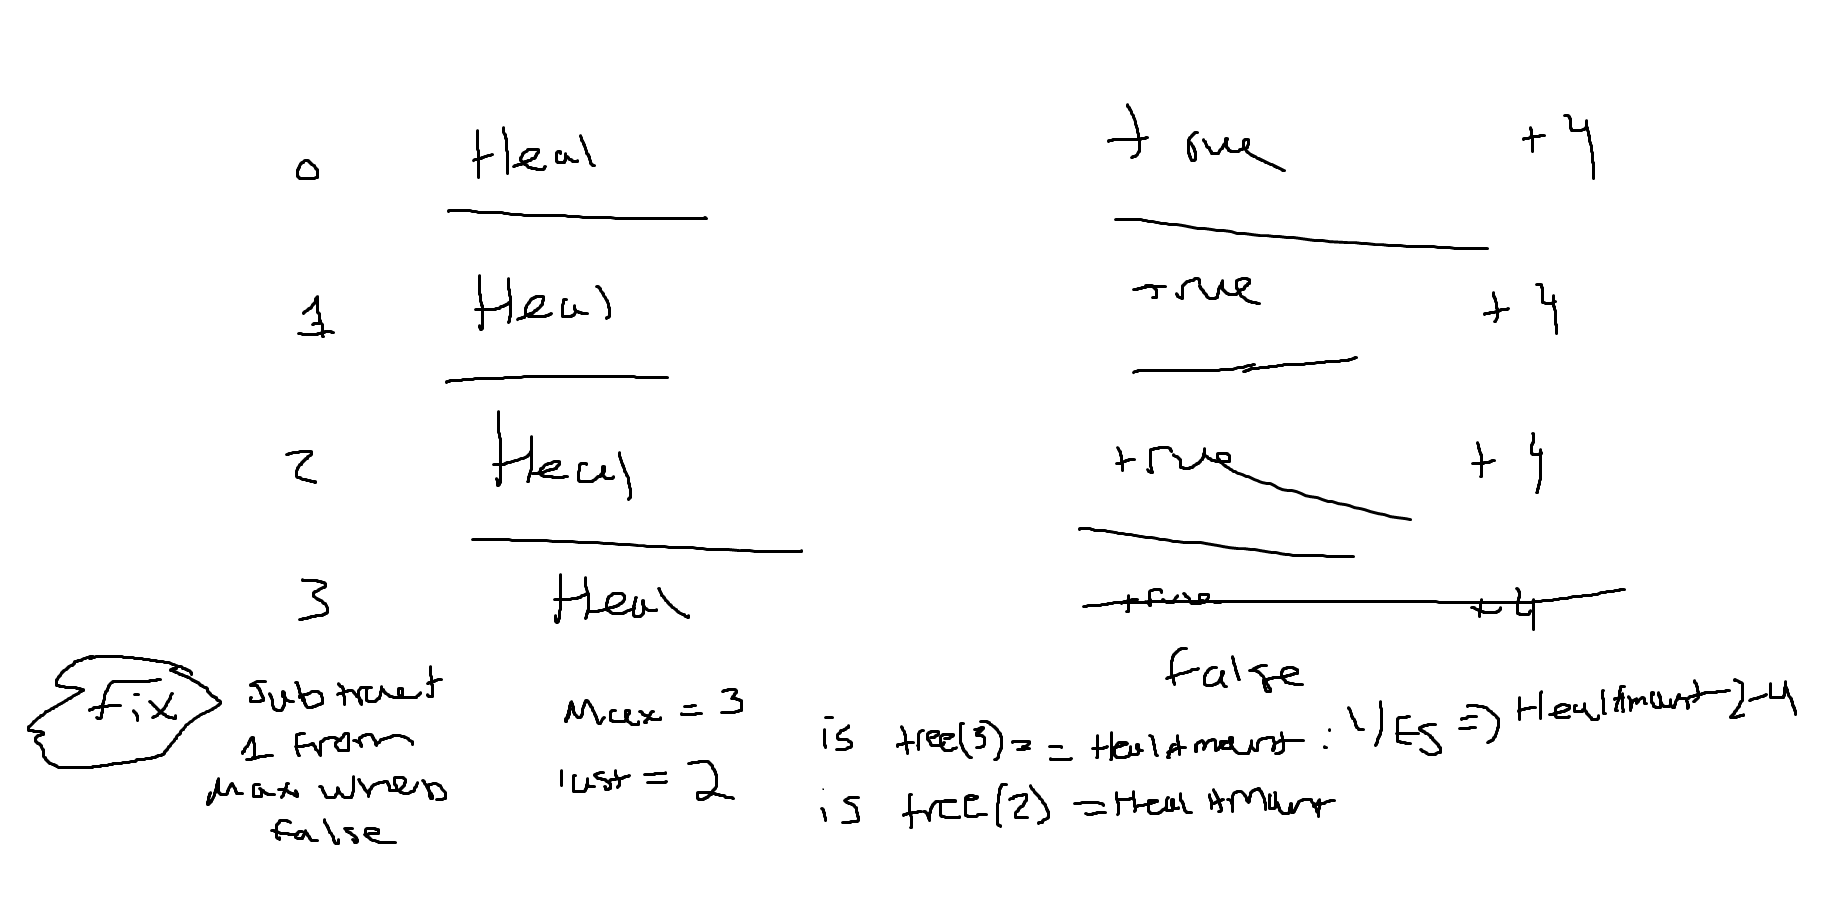 0 Heal true +4
1 Heal true +4
2 Heal true +4
3 Heal true +4
false
fix
Subtract
1 from
Max when
false
Max = 3
last = 2
is tree(3) == HealAmount : YES => HealAmount -= 4
is tree(2) = HealAmount